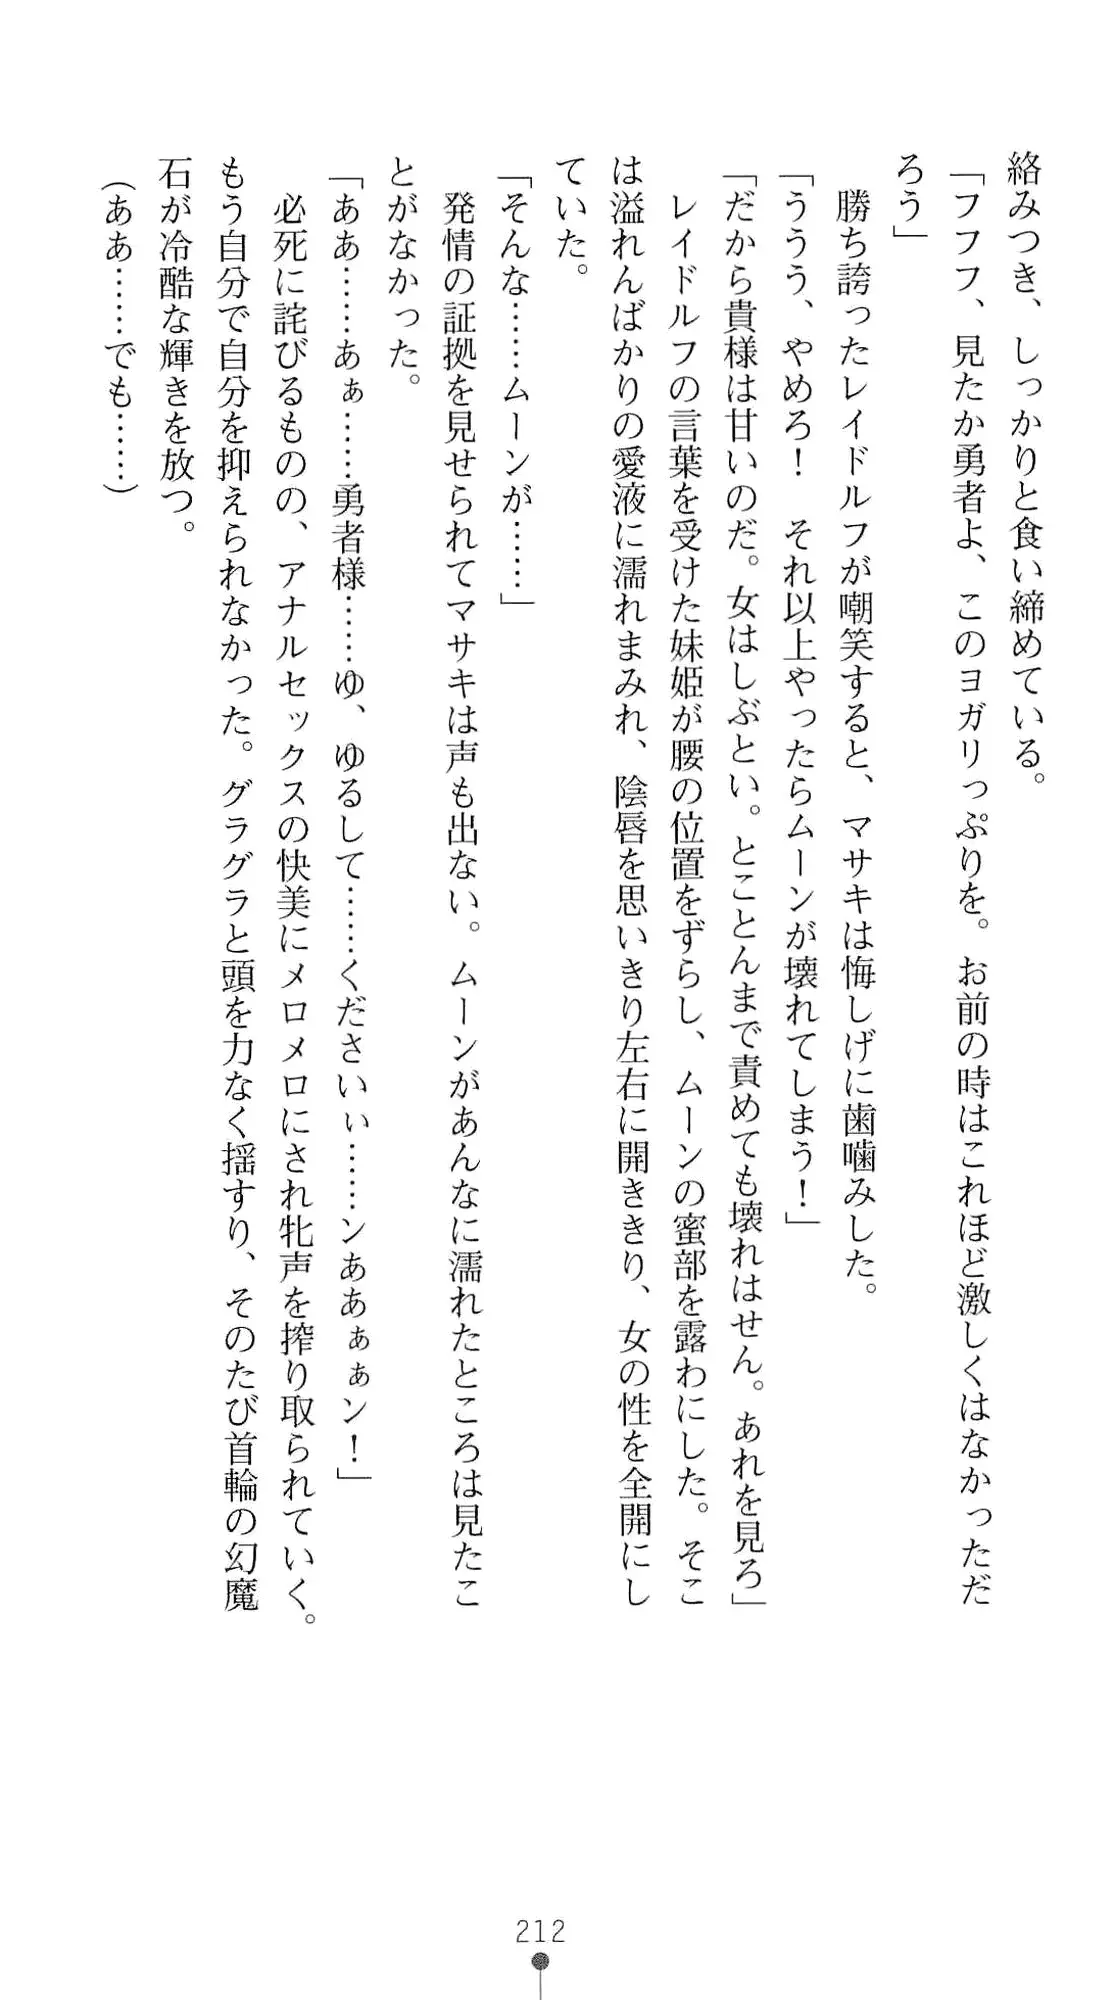 絡みつき、しっかりと食い締めている。
「フフフ、見たか勇者よ、このヨガリっぷりを。お前の時はこれほど激しくはなかっただ
ろう」
勝ち誇ったレイドルフが嘲笑すると、マサキは悔しげに歯噛みした。
「ううう、やめろ！　それ以上やったらムーンが壊れてしまう！」
「だから貴様は甘いのだ。女はしぶとい。とことんまで責めても壊れはせん。あれを見ろ」
レイドルフの言葉を受けた妹姫が腰の位置をずらし、ムーンの蜜部を露わにした。そこ
は溢れんばかりの愛液に濡れまみれ、陰唇を思いきり左右に開ききり、女の性を全開にし
ていた。
「そんな……ムーンが……」
発情の証拠を見せられてマサキは声も出ない。ムーンがあんなに濡れたところは見たこ
とがなかった。
「ああ……あぁ……勇者様……ゆ、ゆるして……くださいぃ……ンああぁぁン！」
必死に詫びるものの、アナルセックスの快美にメロメロにされ牝声を搾り取られていく。
もう自分で自分を抑えられなかった。グラグラと頭を力なく揺すり、そのたび首輪の幻魔
石が冷酷な輝きを放つ。
（ああ……でも……）
212